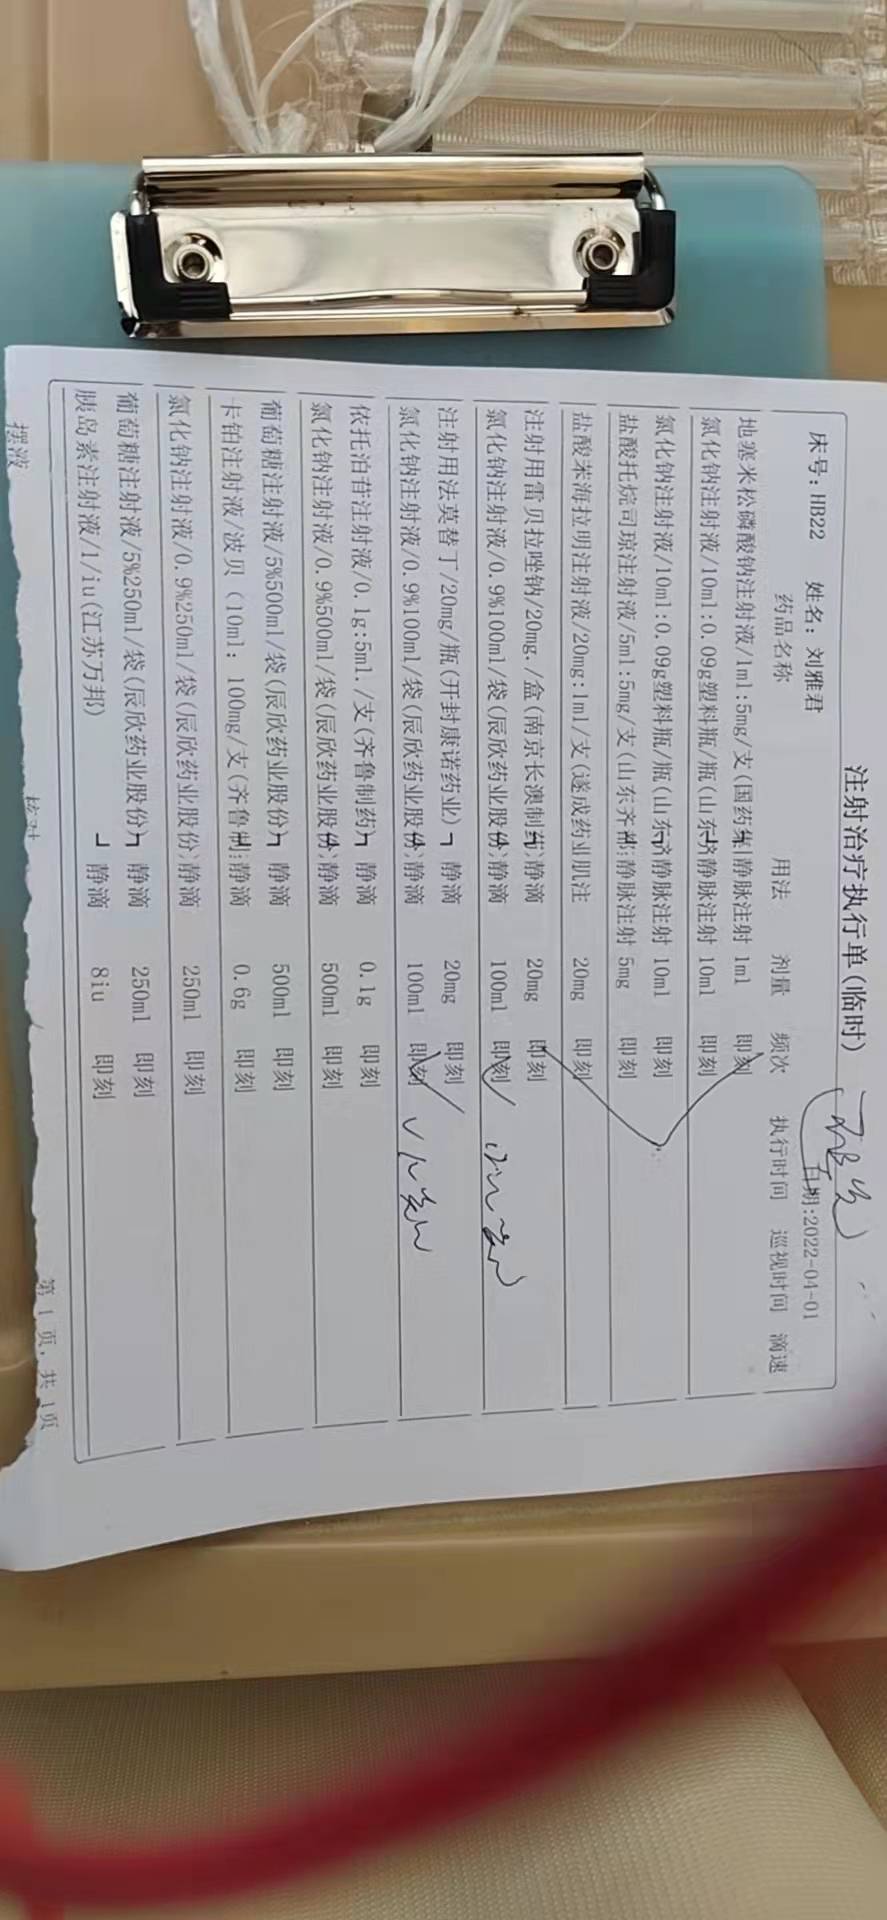 注射治疗执行单(临时)
床号: HB22 姓名: 刘雅君 日期:2022-04-01
药品名称 用法 剂量 频次 执行时间 巡视时间 滴速
地塞米松磷酸钠注射液/1ml:5mg/支(国药集 静脉注射 1ml 即刻
氯化钠注射液/10ml:0.09g塑料瓶/瓶(山东 静脉注射 10ml 即刻
氯化钠注射液/10ml:0.09g塑料瓶/瓶(山东 静脉注射 10ml 即刻
盐酸托烷司琼注射液/5ml:5mg/支(山东齐都 静脉注射 5mg 即刻
盐酸苯海拉明注射液/20mg:1ml/支(遂成药业 肌注 20mg 即刻
注射用雷贝拉唑钠/20mg./盒(南京长澳制药) 静滴 20mg 即刻
氯化钠注射液/0.9%100ml/袋(辰欣药业股份) 静滴 100ml 即刻
注射用法莫替丁/20mg/瓶(开封康诺药业) ┐ 静滴 20mg 即刻
氯化钠注射液/0.9%100ml/袋(辰欣药业股份) 静滴 100ml 即刻
依托泊苷注射液/0.1g:5ml./支(齐鲁制药) ┐ 静滴 0.1g 即刻
氯化钠注射液/0.9%500ml/袋(辰欣药业股份) 静滴 500ml 即刻
葡萄糖注射液/5%500ml/袋(辰欣药业股份) ┐ 静滴 500ml 即刻
卡铂注射液/波贝(10ml: 100mg/支(齐鲁制 静滴 0.6g 即刻
氯化钠注射液/0.9%250ml/袋(辰欣药业股份) 静滴 250ml 即刻
葡萄糖注射液/5%250ml/袋(辰欣药业股份) ┐ 静滴 250ml 即刻
胰岛素注射液/1/iu(江苏万邦) ┘ 静滴 8iu 即刻
摆液 核对 第 1 页, 共 1页